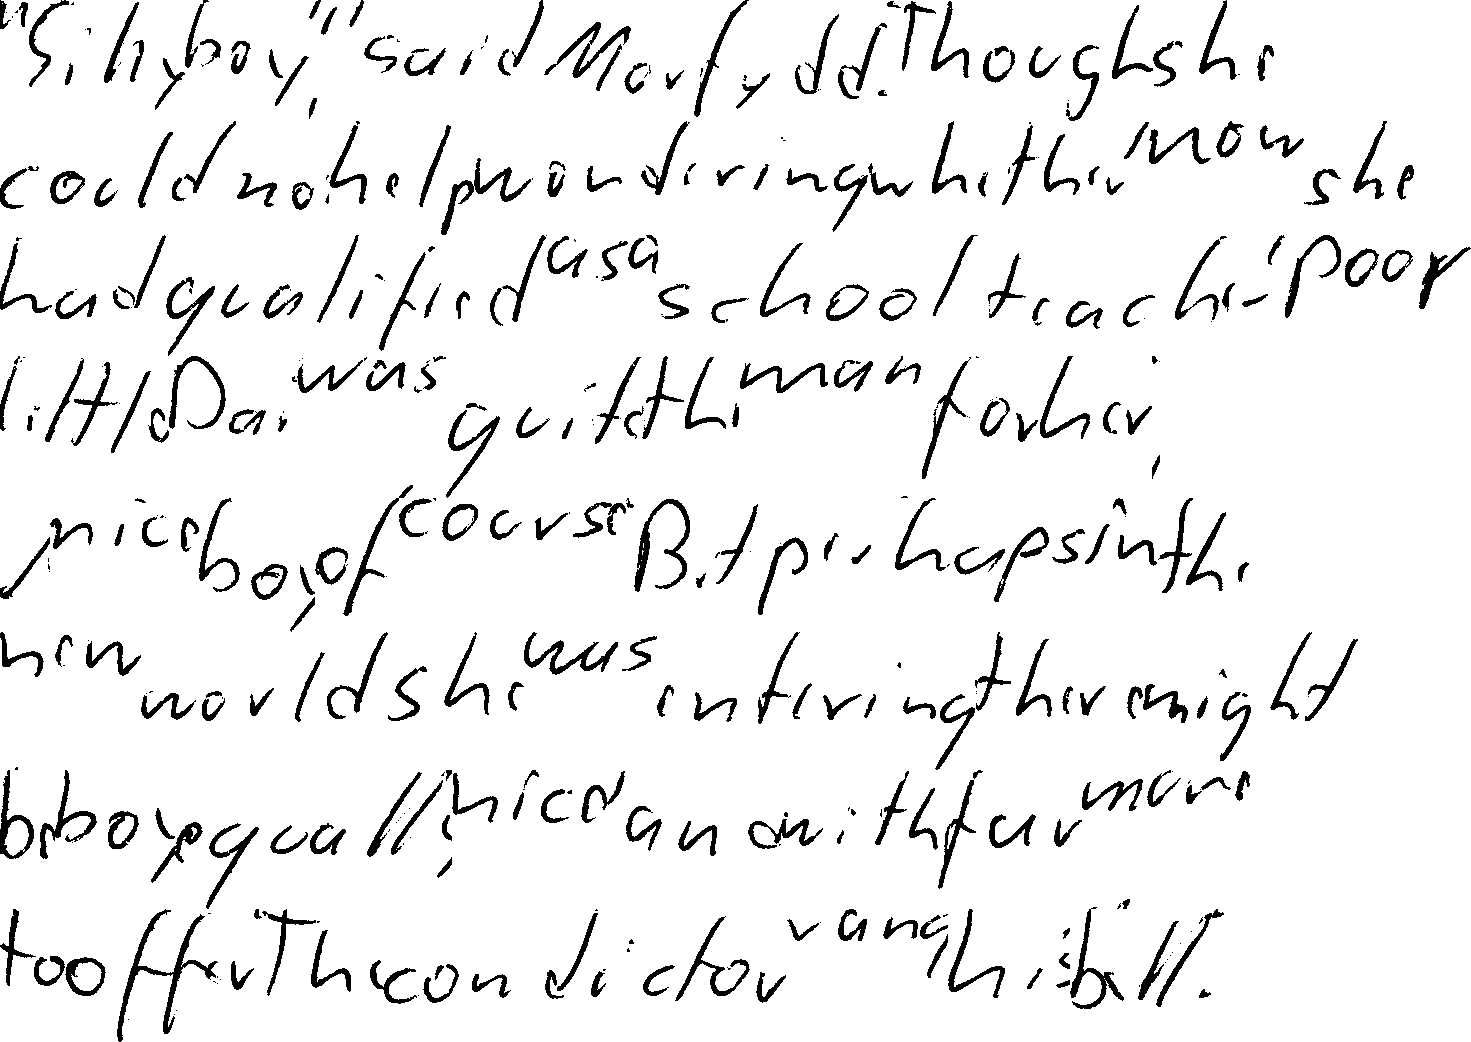 "Silly boy," said Morfydd. Though she
could no help wondering whether now she
had qualified as a school teacher - Poor
little Dai was quite the man for her,
nice boy, of course But perhaps in the
new world she was entering there might
be boys equally nice and with far more
to offer The conductor rang his bell.